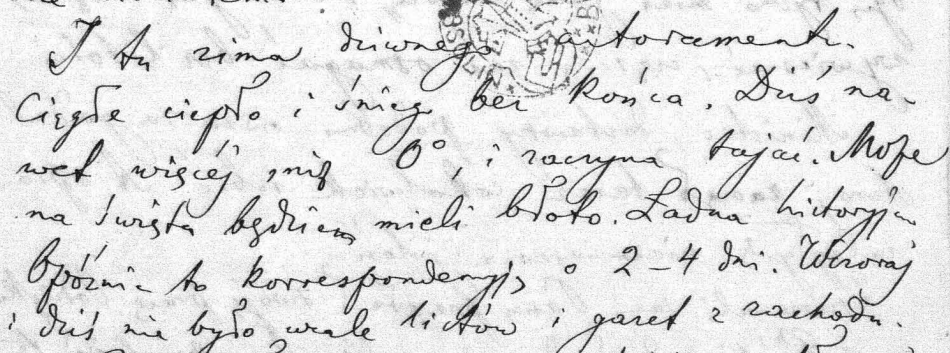 I tu zima dziwnego autoramentu.
Ciągłe ciepło i śnieg bez końca. Dziś na-
wet więcej niż 0°, i zaczyna tajać. Może
na święta będziem mieli błoto. Ładna historyja
Opóźnia to korrespondencyję o 2–4 dni. Wczoraj
i dziś nie było wcale listów i gazet z zachodu.